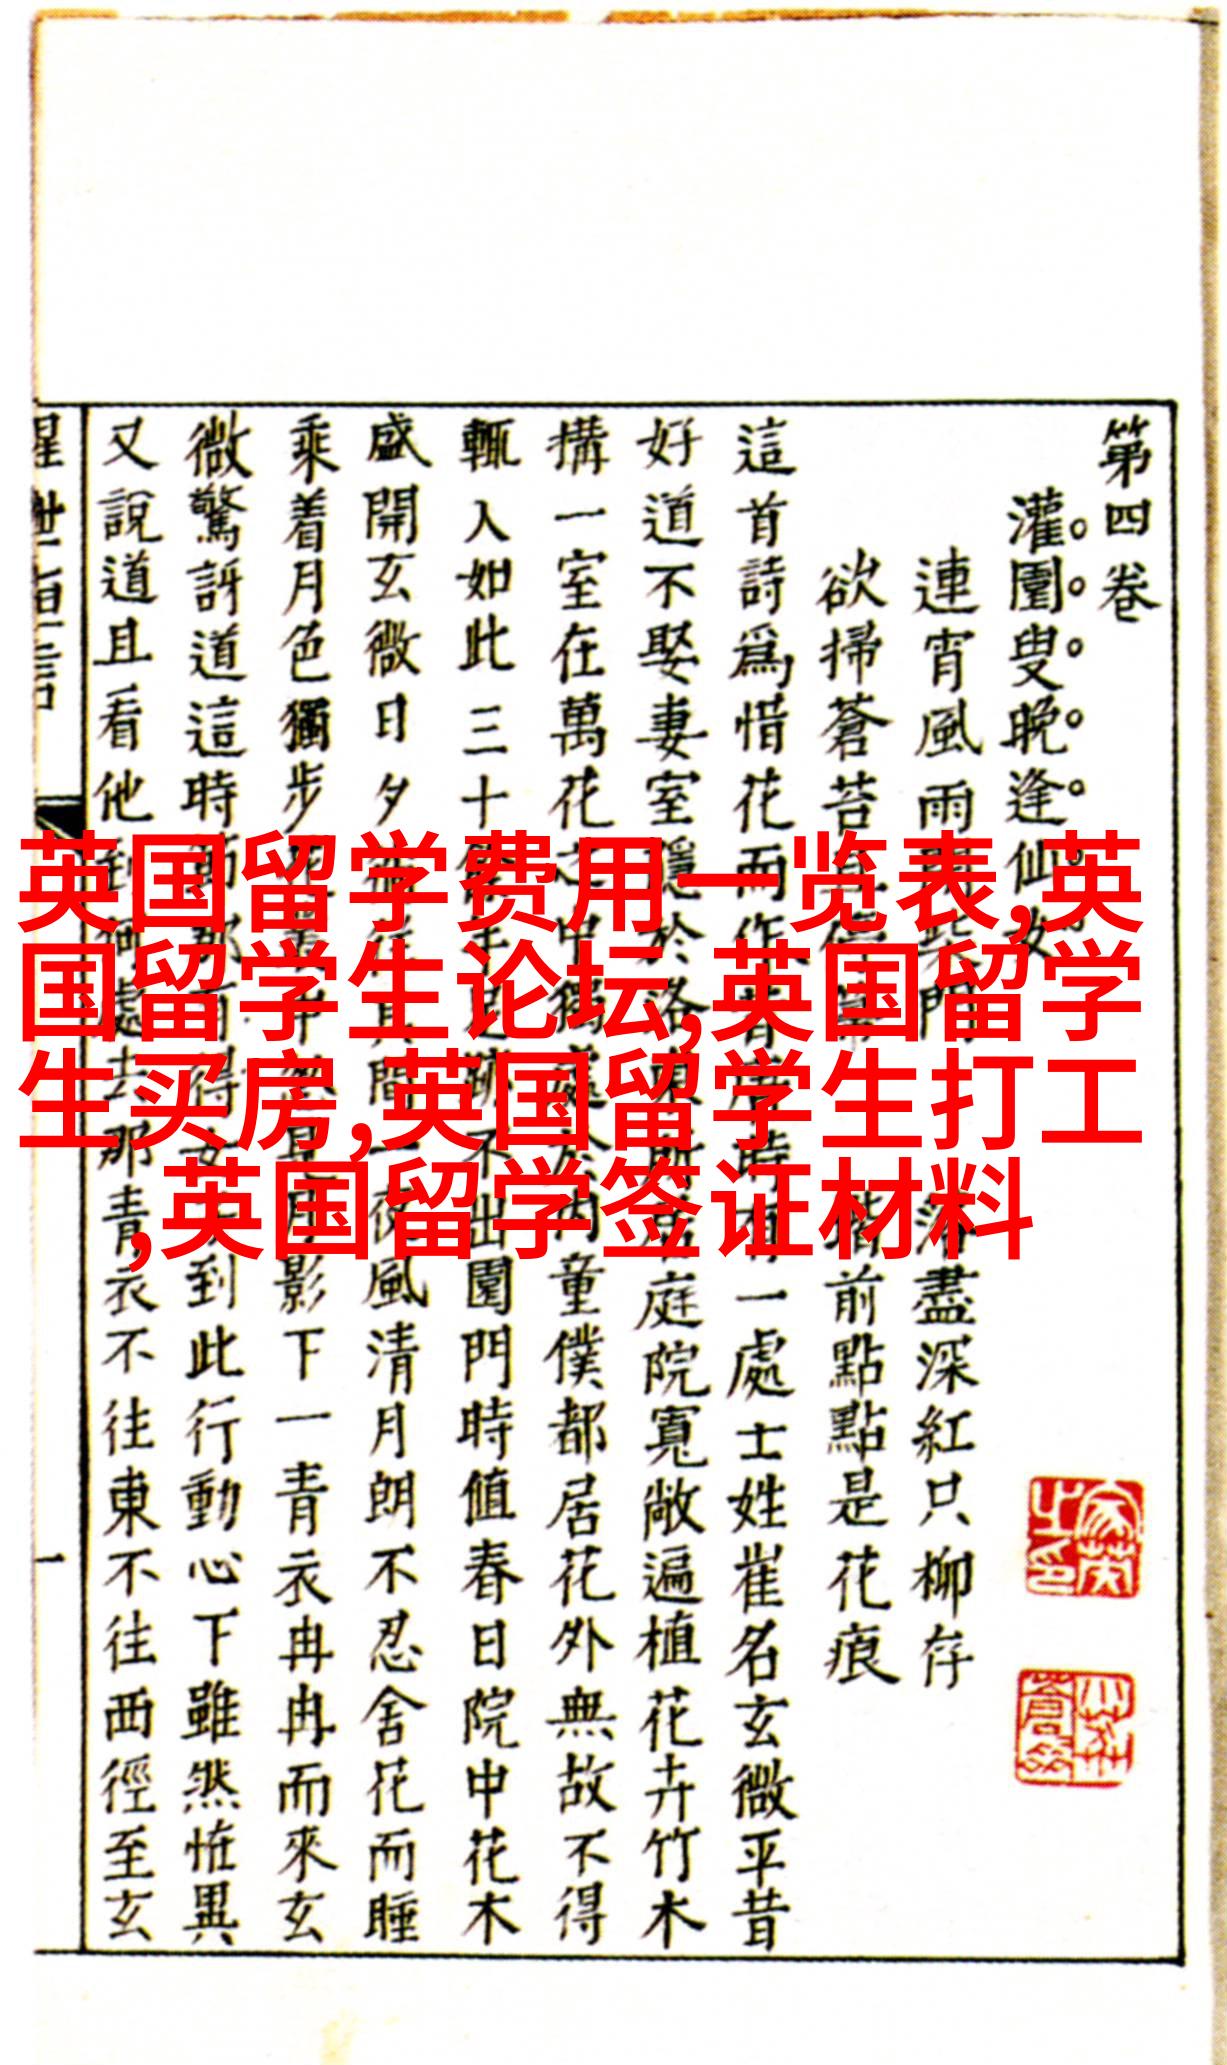 第四卷
灌園叟晚逢仙女
連宵風雨門盡深紅只柳存
欲掃蒼苔且停前點點是花痕
這首詩爲惜花而作昔時有一處士姓崔名玄微平昔
好道不娶妻室隱於洛東所居庭院寬敞遍植花卉竹木
搆一室在萬花之中獨處於內童僕都居花外無故不得
輒入如此三十年足跡不出園門時值春日院中花木
盛開玄微日夕其間一夜風清月朗不忍舍花而睡
乘着月色獨步花中月影下一青衣冉冉而來玄
微驚訝道這時節那有得女到此行動心下雖然怪異
又說道且看他到何處去那青衣不往東不往西徑至玄
一
英国留学费用一览表,英
国留学生论坛,英国留学
生买房,英国留学生打工
,英国留学签证材料